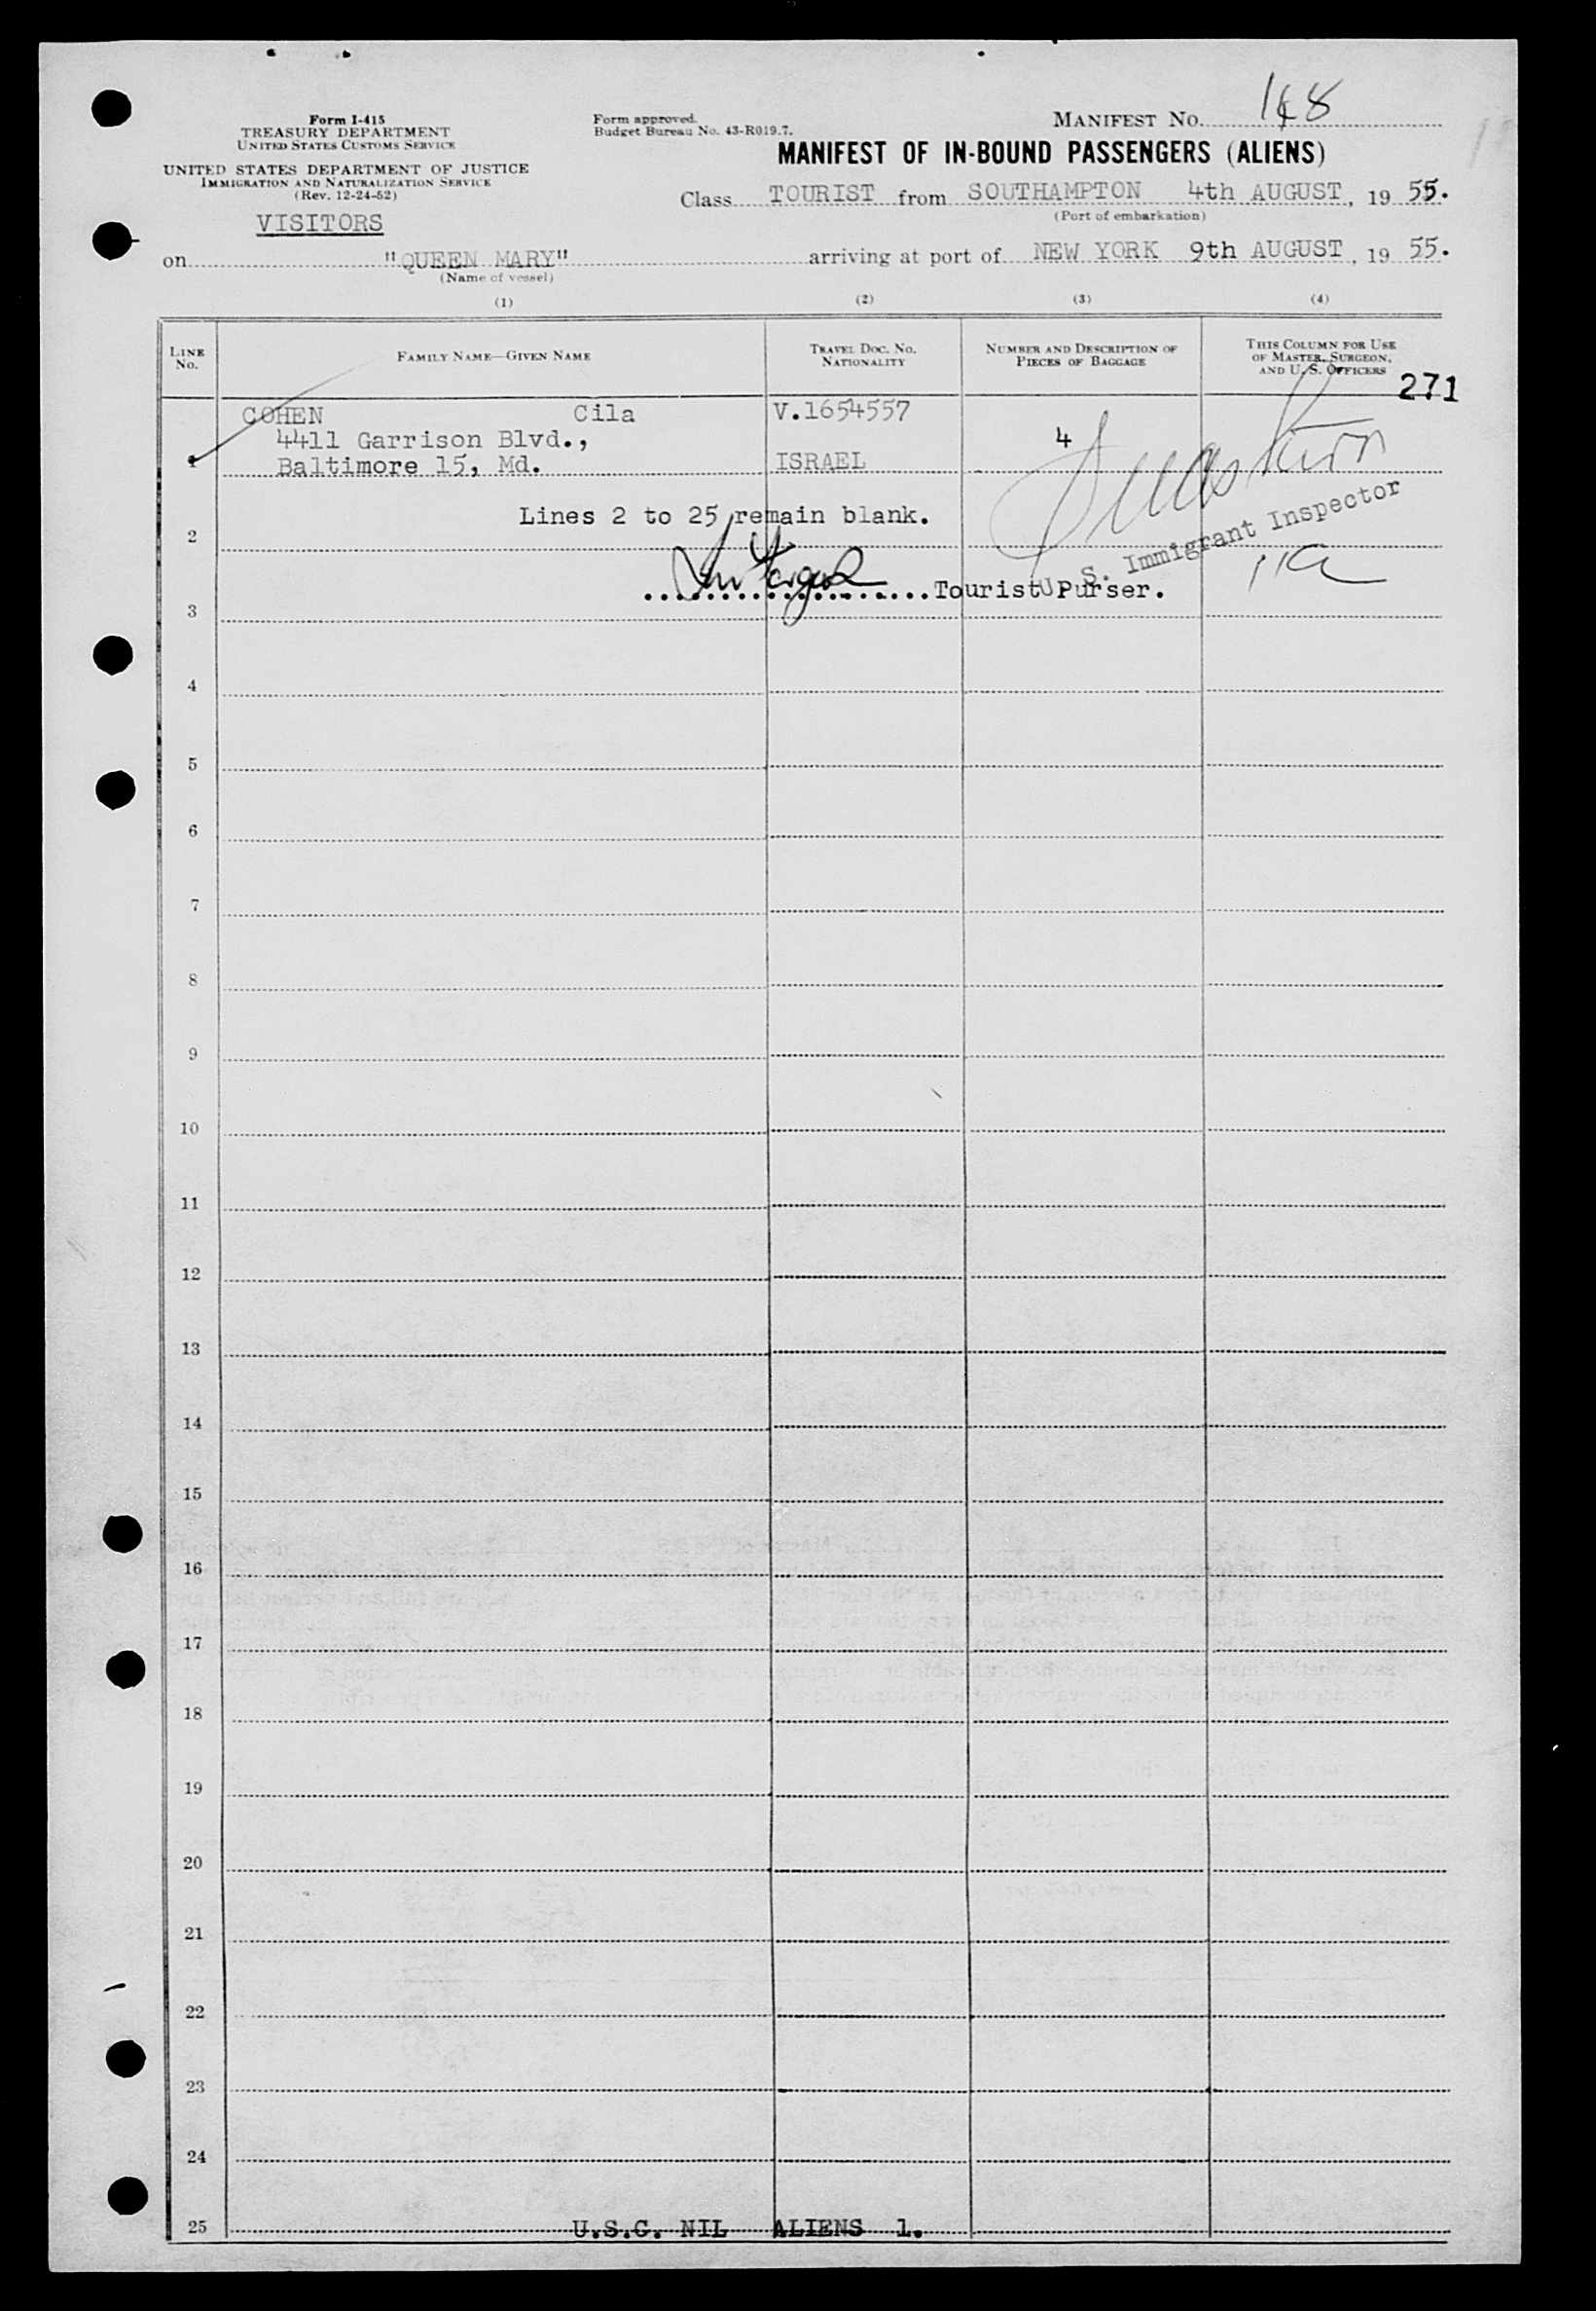 Form I-415
TREASURY DEPARTMENT
UNITED STATES CUSTOMS SERVICE
UNITED STATES DEPARTMENT OF JUSTICE
IMMIGRATION AND NATURALIZATION SERVICE
(Rev. 12-24-52)
VISITORS
Form approved.
Budget Bureau No. 43-R019.7.
MANIFEST NO.
MANIFEST OF IN-BOUND PASSENGERS (ALIENS)
Class TOURIST from SOUTHAMPTON 4th AUGUST, 19 55.
(Port of embarkation)
on "QUEEN MARY" arriving at port of NEW YORK 9th AUGUST, 19 55.
(Name of vessel)
(1) (2) (3) (4)
LINE No. FAMILY NAME—GIVEN NAME TRAVEL DOC. NO. NATIONALITY NUMBER AND DESCRIPTION OF PIECES OF BAGGAGE THIS COLUMN FOR USE OF MASTER, SURGEON, AND U. S. OFFICERS
271
COHEN Cila V.1654557
4411 Garrison Blvd., 4
1 Baltimore 15, Md. ISRAEL
Lines 2 to 25 remain blank.
2
U. S. Immigrant Inspector
Tourist Purser.
3
4
5
6
7
8
9
10
11
12
13
14
15
16
17
18
19
20
21
22
23
24
25 U.S.C. NIL ALIENS 1.